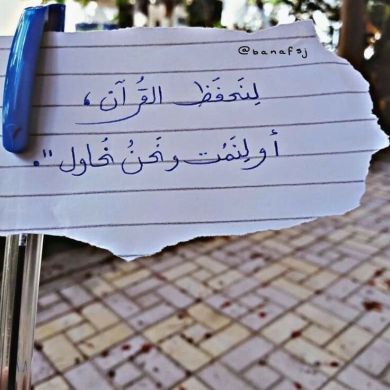 @banafsj
لِنَحفَظ القُرآن ،
أو لِنَمُت ونَحنُ نُحاول".